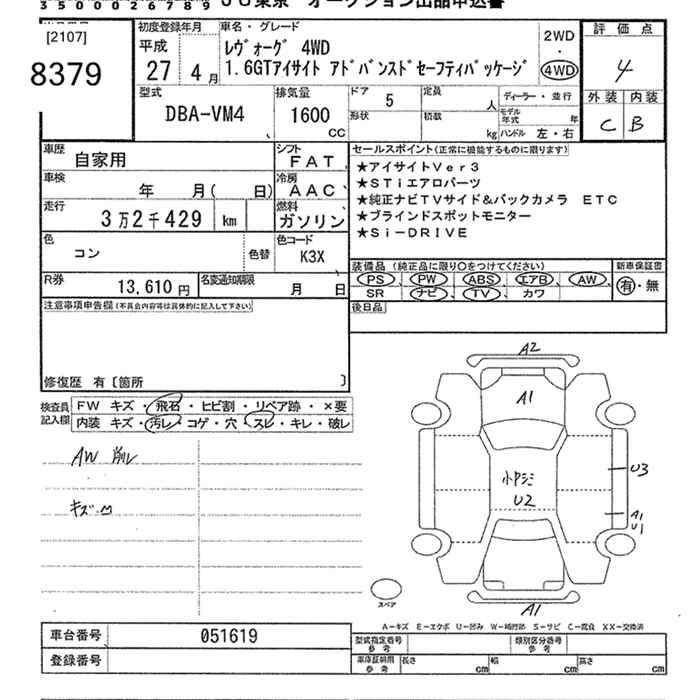 3500026789 JU東京 オークション出品申込書
[2107]
8379
初度登録年月
平成 27 年 4 月
車名・グレード
レヴォーグ 4WD
1.6GTアイサイト アドバンスドセーフティパッケージ
2WD
・
4WD
評価点
4
外装 内装
C B
型式
DBA-VM4
排気量
1600
CC
ドア 5
定員 人
形状
積載 kg
ディーラー・並行
モデル年式 年
ハンドル 左・右
車歴
自家用
シフト
FAT
車検
年 月( 日)
冷房
AAC
走行
3万2千429 km
燃料
ガソリン
色
コン
色替
色コード
K3X
R券
13,610円
名変通知期限
月 日
セールスポイント(正常に機能するものに限ります)
★アイサイトVer3
★STiエアロパーツ
★純正ナビTVサイド&バックカメラ ETC
★ブラインドスポットモニター
★Si-DRIVE
装備品(純正品に限り○をつけてください)
PS PW ABS エアB AW
SR ナビ TV カワ
新車保証書
有・無
後日品
注意事項申告欄(不具合内容等は具体的に記入して下さい)
修復歴 有〔箇所 〕
検査員記入欄
FW キズ・飛石・ヒビ割・リペア跡・×要
内装 キズ・汚レ・コゲ・穴・スレ・キレ・破レ
AW 削レ
キズ.M
A2
A1
U2
U3
A1
U1
A1
スペア
A-キズ E-エクボ U-凹み W-補修跡 S-サビ C-腐食 XX-交換済
車台番号 051619
登録番号
型式指定番号
参考
類別区分番号
参考
車庫証明用
参考
長さ cm 幅 cm 高さ cm